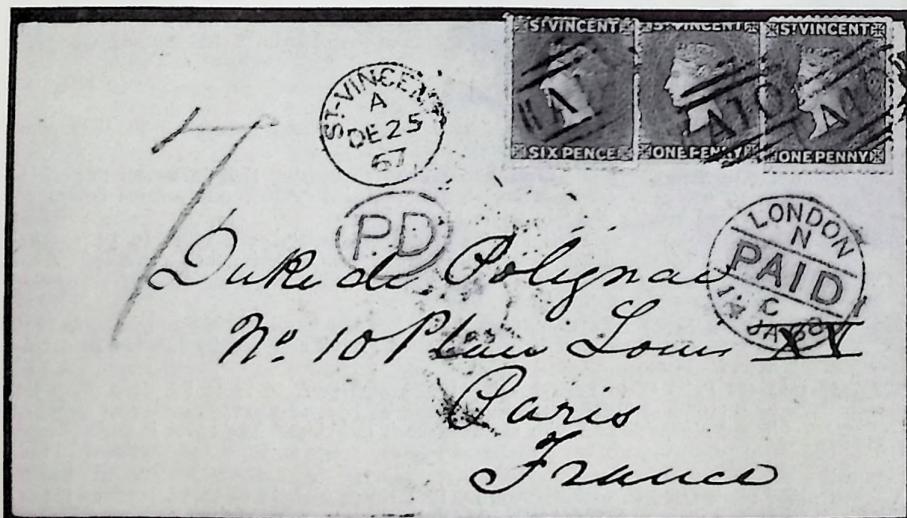 ST VINCENT
SIX PENCE
ST VINCENT
ONE PENNY
ST VINCENT
ONE PENNY
A10
A10
ST-VINCENT
A
DE 25
67
7
PD
LONDON
N
PAID
C
JA 68
Duke de Polignac
No. 10 Place Louis XV
Paris
France